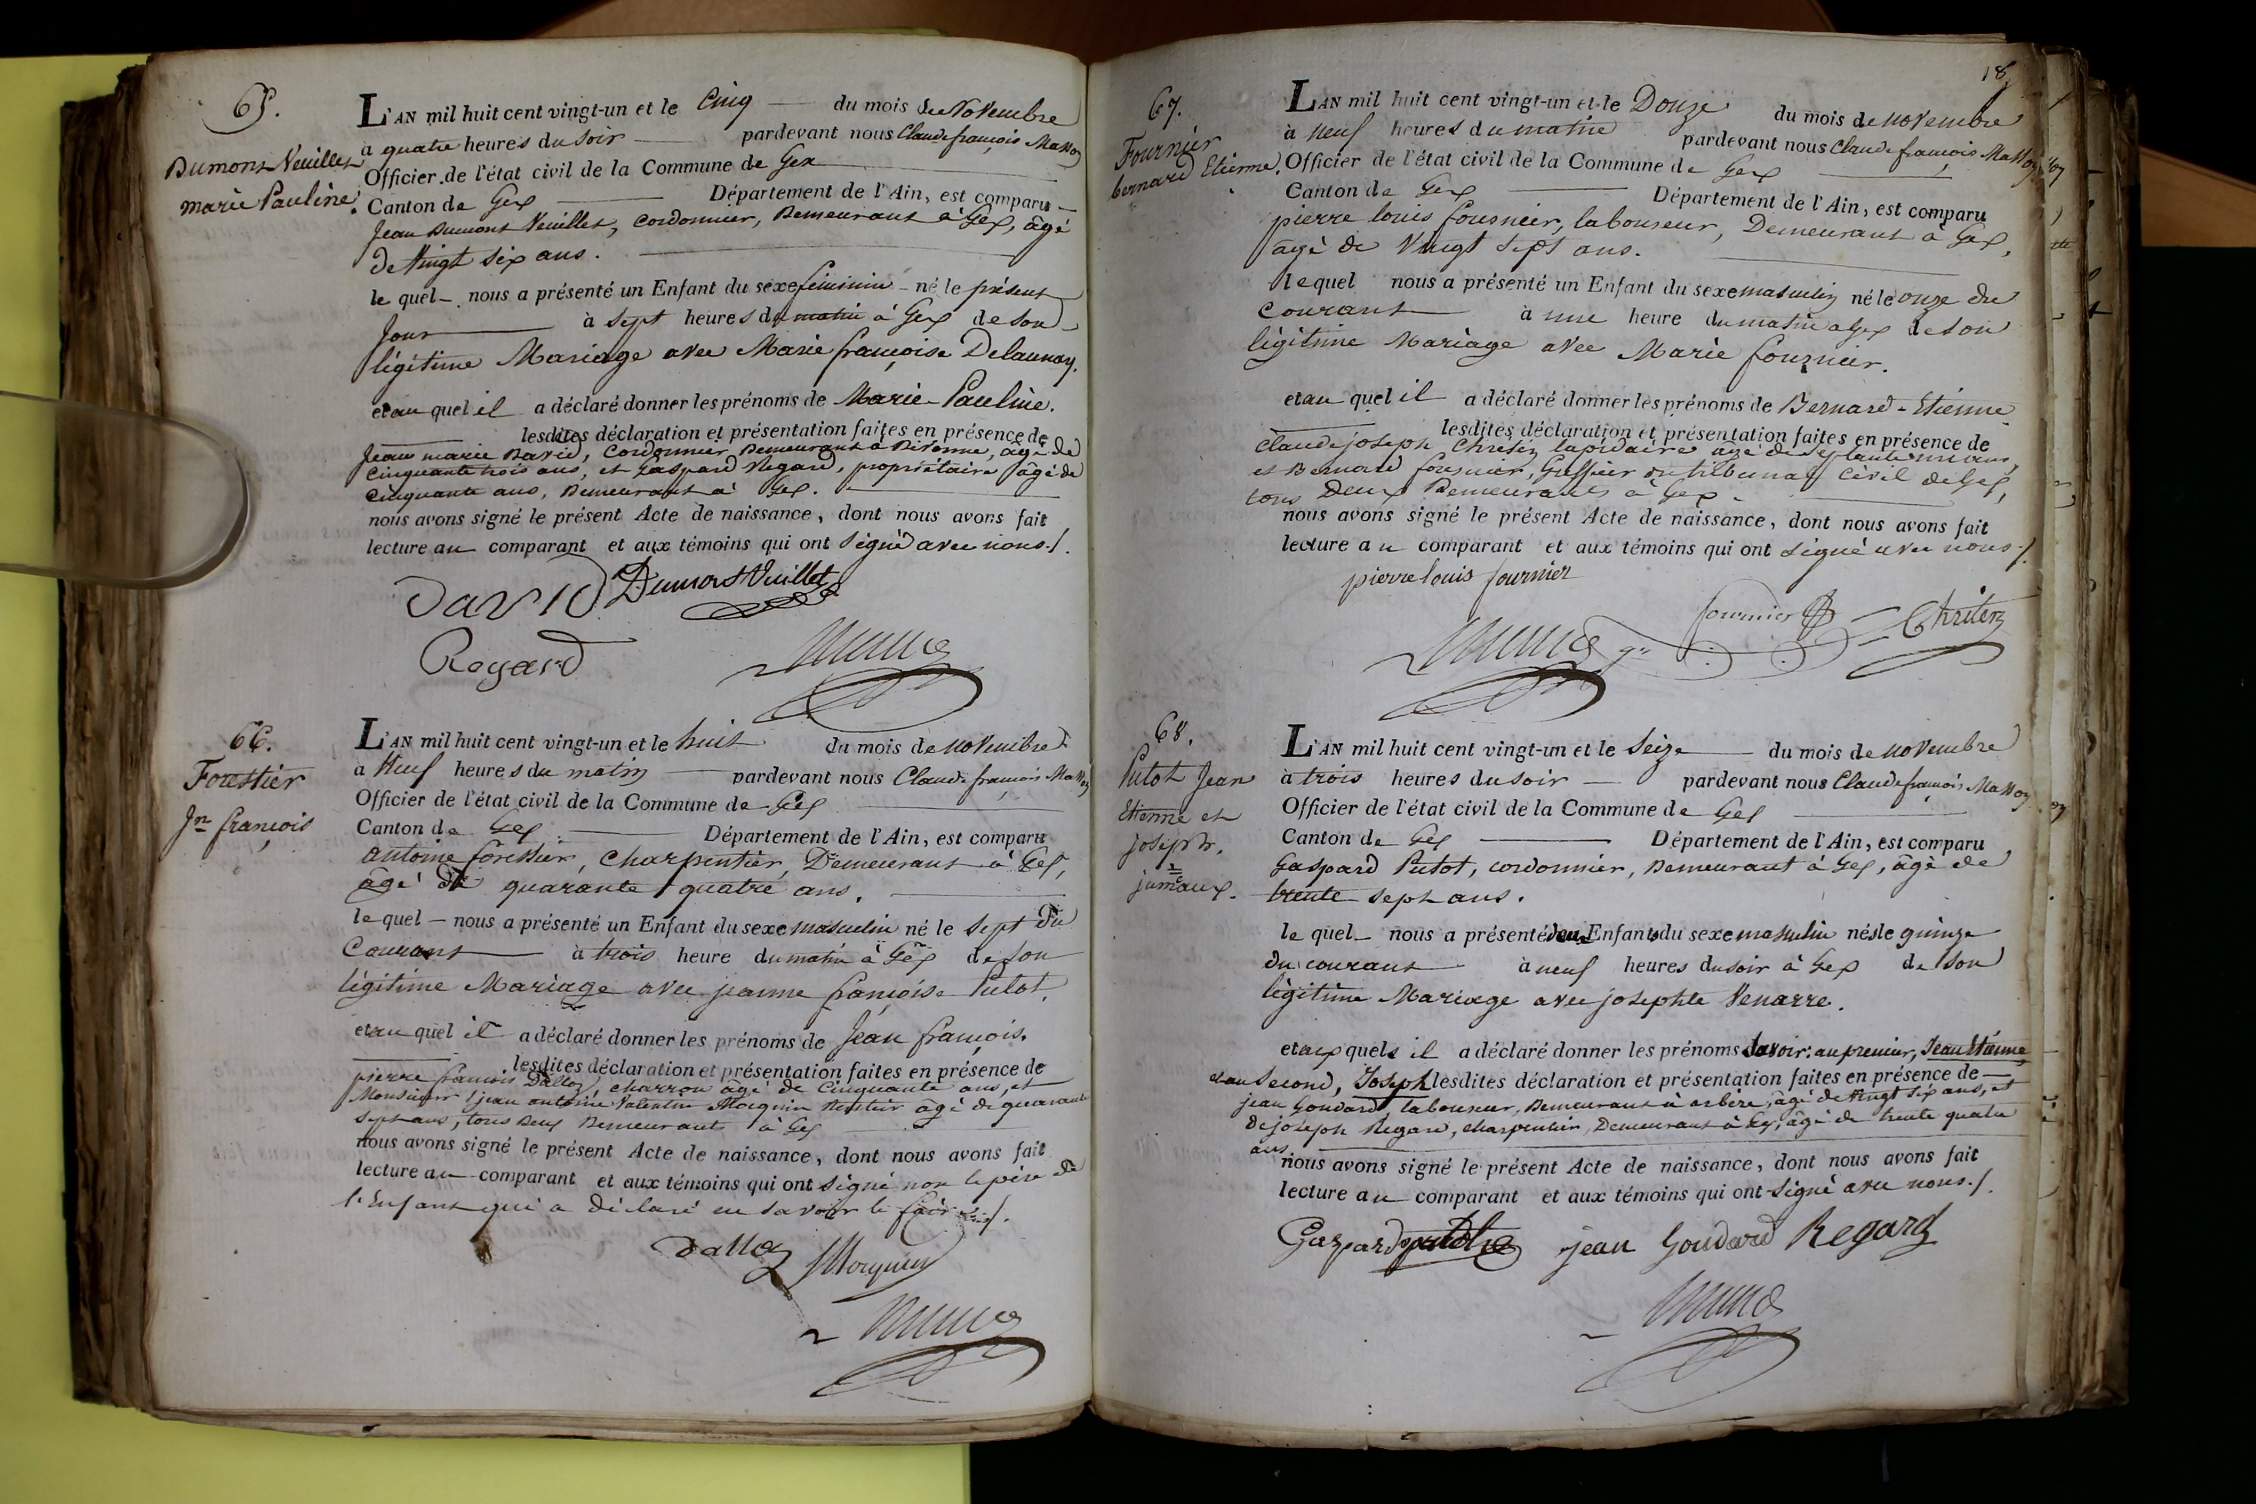 65.
Dumont Veuillet
marie Pauline.
L'AN mil huit cent vingt-un et le Cinq du mois de Novembre
à quatre heures du soir pardevant nous Claude françois Massoy
Officier de l'état civil de la Commune de Gex
Canton de Gex Département de l'Ain, est comparu
Jean Dumont Veuillet, cordonnier, Demeurant à Gex, âgé
de Vingt six ans.
le quel nous a présenté un Enfant du sexe féminin né le présent
Jour à sept heures du matin à Gex de son
légitime Mariage avec Marie françoise Delaunay.
et au quel il a déclaré donner les prénoms de Marie-Pauline.
lesdites déclaration et présentation faites en présence de
Jean marie David, Cordonnier Demeurant à Divonne, âgé de
cinquante trois ans, et Gaspard Regard, propriétaire âgé de
cinquante ans, Demeurant à Gex.
nous avons signé le présent Acte de naissance, dont nous avons fait
lecture au comparant et aux témoins qui ont signé avec nous./.
David Dumont Vuillet
Regard
66.
Forestier
Jn françois
L'AN mil huit cent vingt-un et le huit du mois de novembre
à Neuf heures du matin pardevant nous Claude françois Massoy
Officier de l'état civil de la Commune de Gex
Canton de Gex Département de l'Ain, est comparu
antoine forestier, Charpentier, Demeurant à Gex,
âgé de quarante quatre ans.
le quel nous a présenté un Enfant du sexe masculin né le sept du
Courant à trois heure du matin à Gex de son
légitime Mariage avec jeanne françoise Putot.
et au quel il a déclaré donner les prénoms de Jean françois.
lesdites déclaration et présentation faites en présence de
pierre françois Dalloz, charron âgé de Cinquante ans, et
Monsieur jean antoine Valentin Morquin Rentier âgé de quarante
sept ans, tous Deux Demeurants à Gex
nous avons signé le présent Acte de naissance, dont nous avons fait
lecture au comparant et aux témoins qui ont signé non le père de
l'Enfant qui a déclaré ne savoir le faire ./.
Dalloz Morquin
18
67.
Fournier
bernard Etienne.
L'AN mil huit cent vingt-un et le Douze du mois de novembre
à neuf heures du matin pardevant nous Claude françois Massoy
Officier de l'état civil de la Commune de Gex
Canton de Gex Département de l'Ain, est comparu
pierre louis fournier, laboureur, Demeurant à Gex,
âgé de Vingt sept ans.
le quel nous a présenté un Enfant du sexe masculin né le onze du
courant à une heure du matin à Gex de son
légitime Mariage avec Marie fournier.
et au quel il a déclaré donner les prénoms de Bernard-Etienne
lesdites déclaration et présentation faites en présence de
Claude joseph Chretin lapidaire âgé de
et Bernard fournier, Greffier du tribunal civil de Gex,
tous Deux Demeurants à Gex.
nous avons signé le présent Acte de naissance, dont nous avons fait
lecture au comparant et aux témoins qui ont signé avec nous./.
pierre louis fournier
fournier Chretin
68.
Putot Jean
Etienne et
joseph.
jumeaux.
L'AN mil huit cent vingt-un et le seize du mois de novembre
à trois heures du soir pardevant nous Claude françois Massoy
Officier de l'état civil de la Commune de Gex
Canton de Gex Département de l'Ain, est comparu
Gaspard Putot, cordonnier, Demeurant à Gex, âgé de
trente sept ans.
le quel nous a présenté deux Enfants du sexe masculin nés le quinze
du courant à neuf heures du soir à Gex de son
légitime Mariage avec josephte Venarre.
et aux quels il a déclaré donner les prénoms savoir: au premier, Jean Etienne
et au second, Joseph lesdites déclaration et présentation faites en présence de
jean Goudard, laboureur, Demeurant à arbère, âgé de Vingt six ans, et
de joseph Regard, charpentier, Demeurant à Gex, âgé de trente quatre
ans.
nous avons signé le présent Acte de naissance, dont nous avons fait
lecture au comparant et aux témoins qui ont signé avec nous./.
Gaspard putot jean Goudard Regard